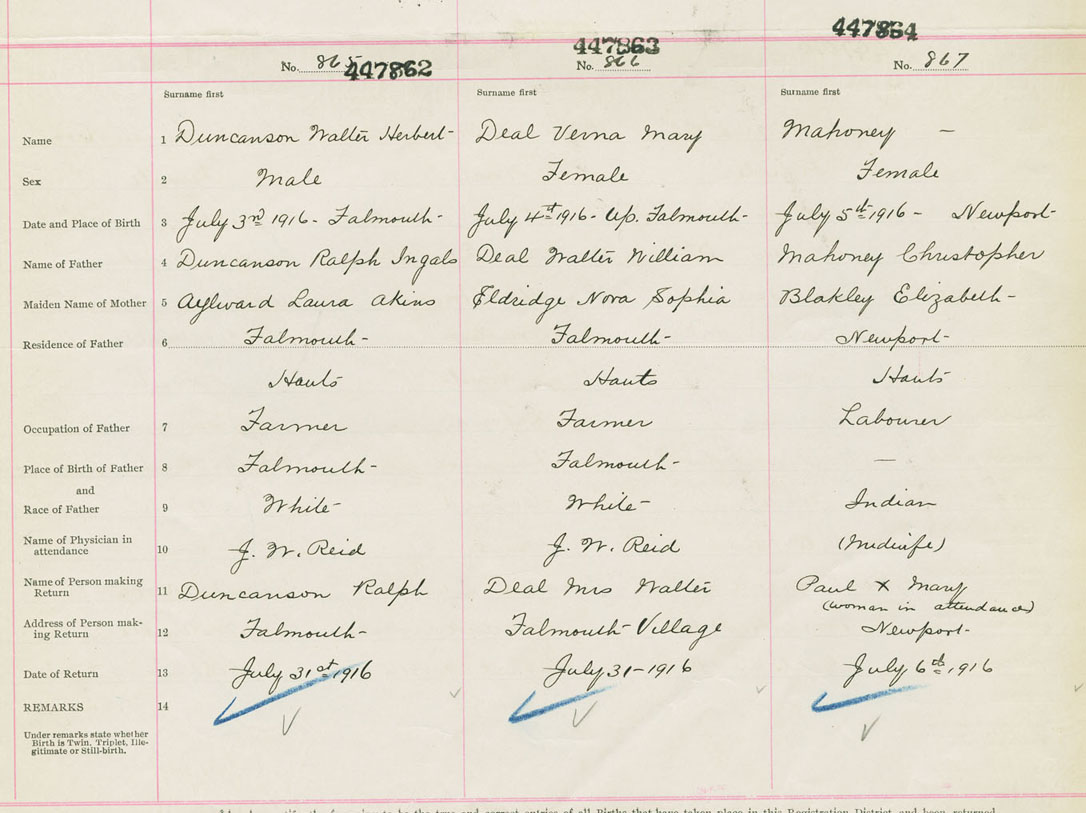 447862 447863 447864
No. 865 No. 866 No. 867
Surname first Surname first Surname first
Name 1 Duncanson Walter Herbert- Deal Verna Mary Mahoney —
Sex 2 Male Female Female
Date and Place of Birth 3 July 3rd 1916- Falmouth- July 4th 1916- Up. Falmouth- July 5th 1916- Newport-
Name of Father 4 Duncanson Ralph Ingals Deal Walter William Mahoney Christopher
Maiden Name of Mother 5 Aylward Laura Akins Eldridge Nova Sophia Blakley Elizabeth-
Residence of Father 6 Falmouth- Falmouth- Newport-
Hants Hants Hants
Occupation of Father 7 Farmer Farmer Labourer
Place of Birth of Father 8 Falmouth- Falmouth- —
and
Race of Father 9 White- White- Indian
Name of Physician in attendance 10 J. W. Reid J. W. Reid (Midwife)
Name of Person making Return 11 Duncanson Ralph Deal Mrs Walter Paul X Mary
(woman in attendance)
Address of Person mak-ing Return 12 Falmouth- Falmouth Village Newport-
Date of Return 13 July 31st 1916 July 31-1916 July 6th, 1916
REMARKS 14
Under remarks state whether
Birth is Twin, Triplet, Ille-
gitimate or Still-birth.
the true and correct entries of all Births that have taken place in this Registration District and been returned